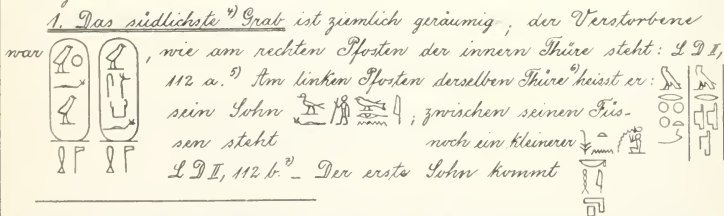 1. Das südlichste ⁴⁾ Grab ist ziemlich geräumig; der Verstorbene
war , wie am rechten Pfosten der innern Thüre steht: L D II,
112 a. ⁵⁾ Am linken Pfosten derselben Thüre ⁶⁾ heisst er:
sein Sohn ; zwischen seinen Füs-
sen steht noch ein kleinerer
L D II, 112 b. ⁷⁾ _ Der erste Sohn kommt